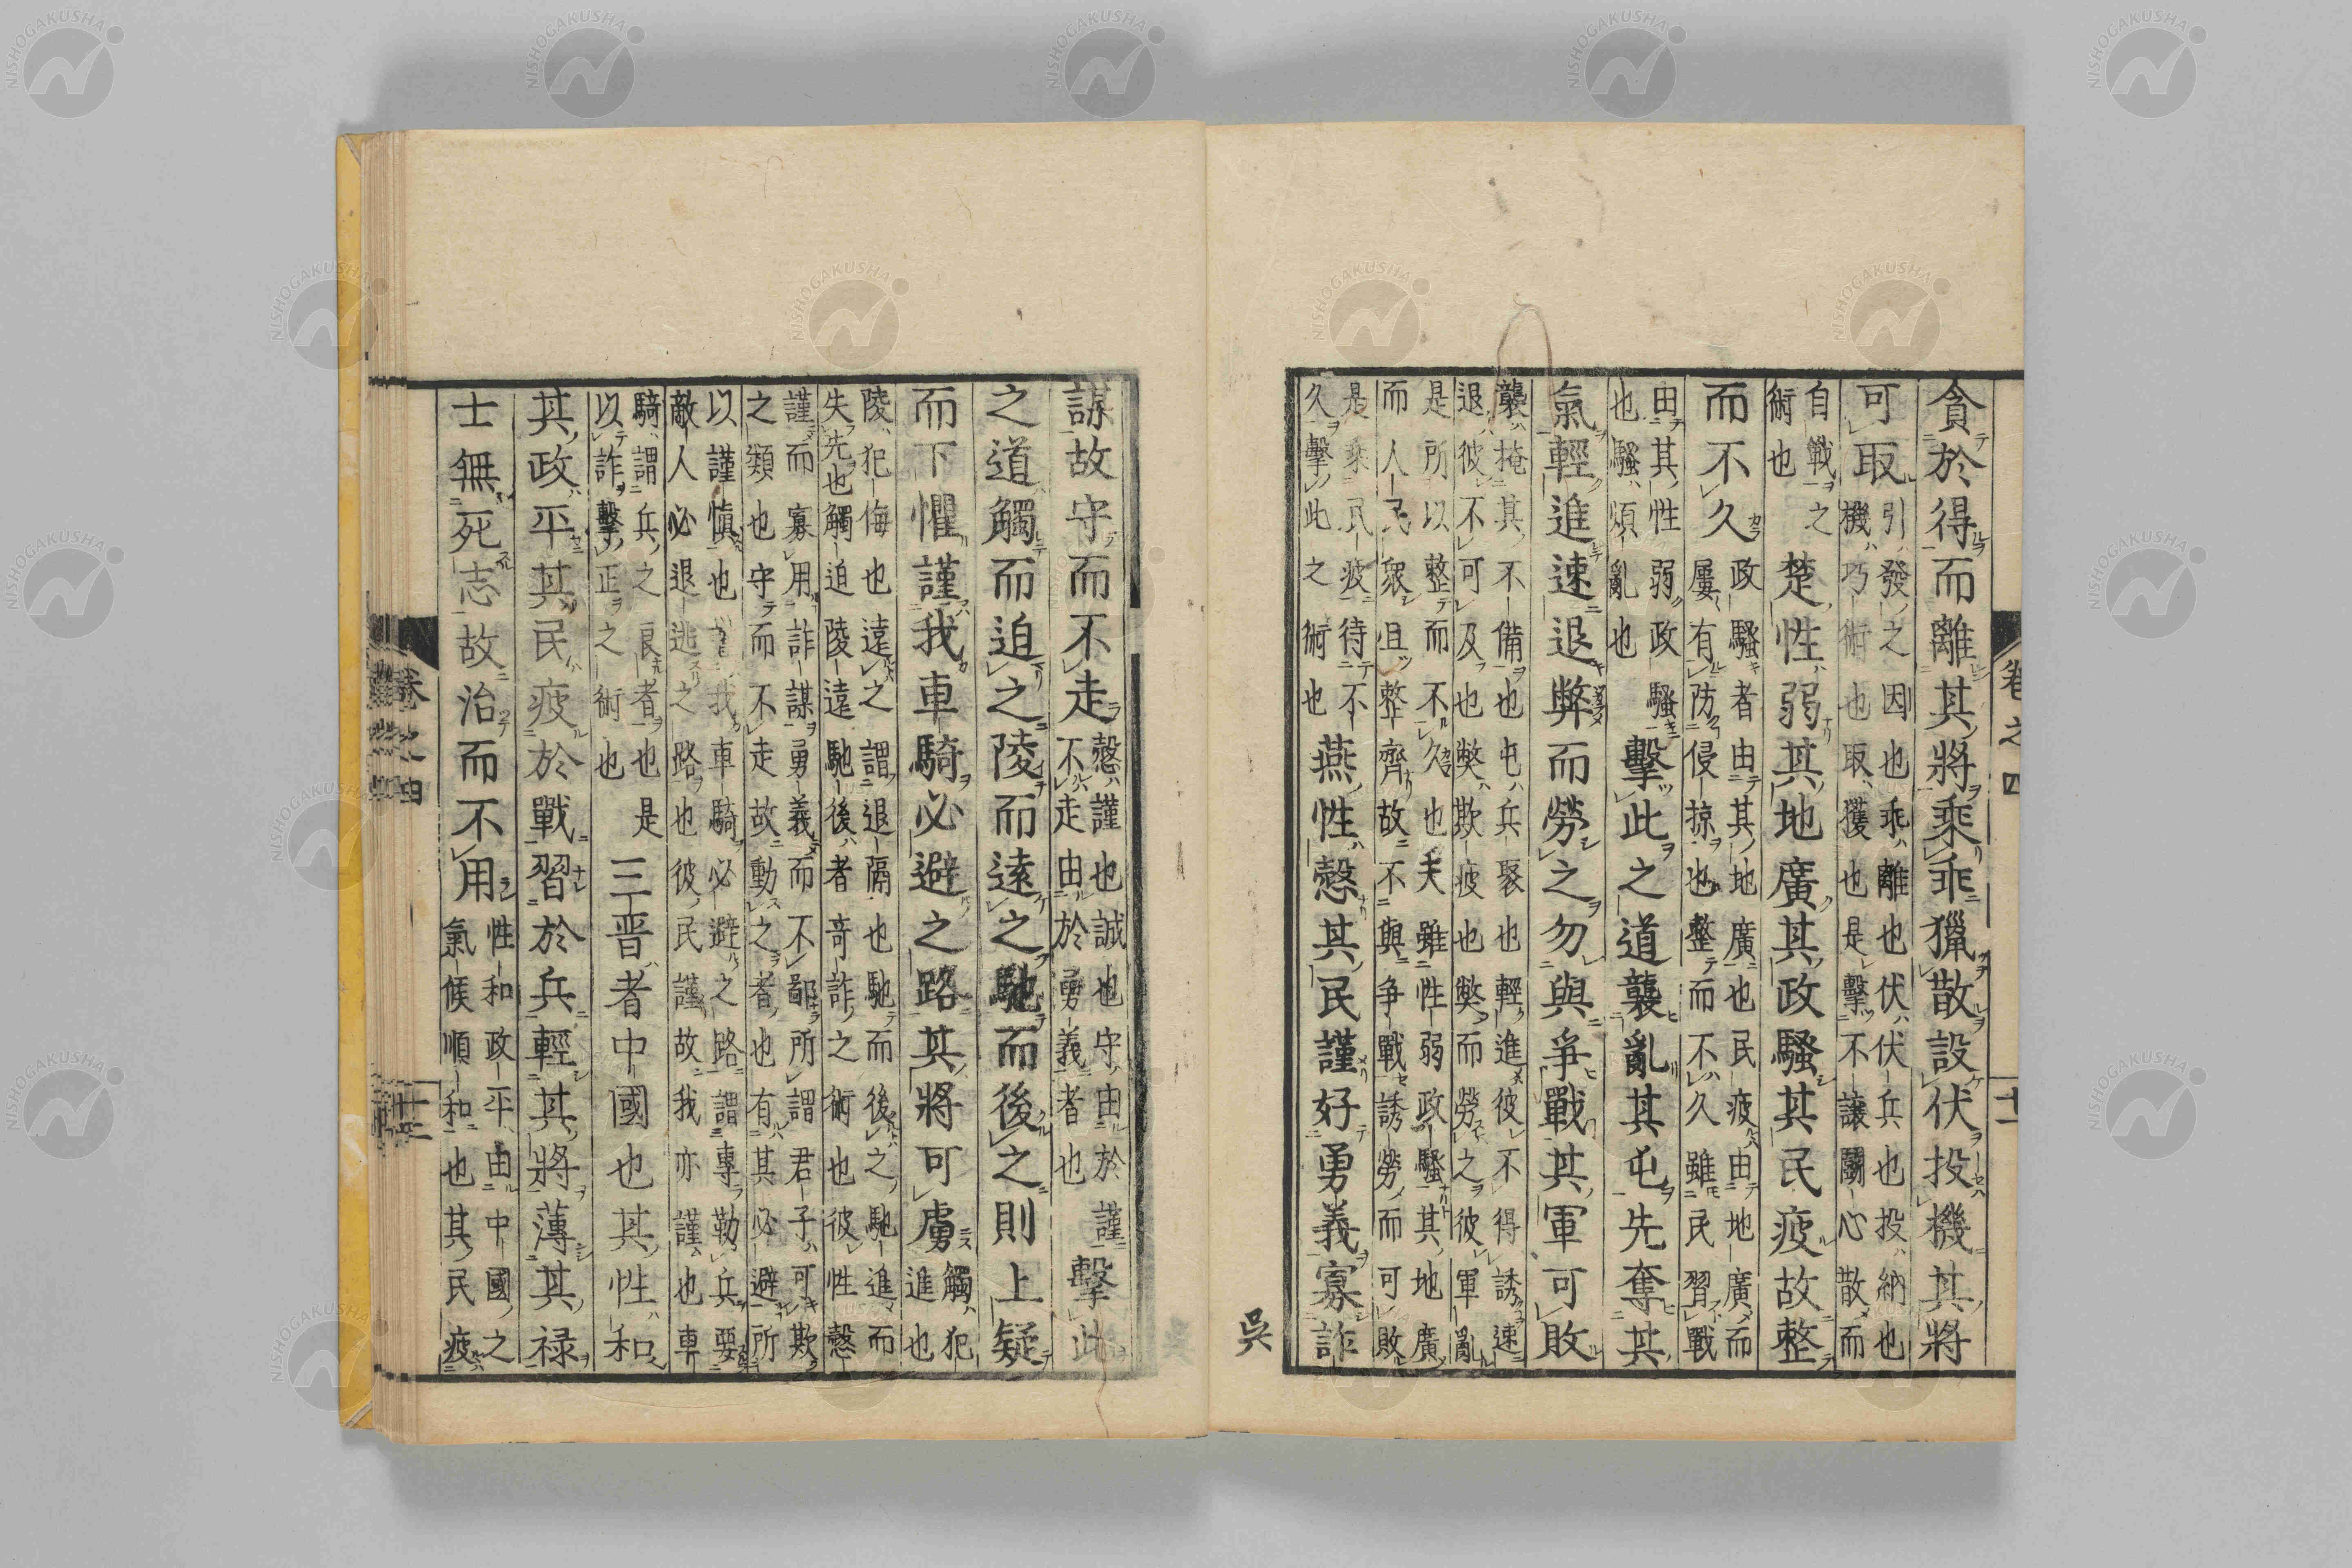 卷之四 十二
貪於得而離其將乘乖獵散設伏投機其將
可取
引發之因也乖離也伏伏兵也投納也
機巧術也取獲也是擊不讓鬬心散而
自戰之
術也
楚性弱其地廣其政騷其民疲故整
而不久
政騷者由其地廣也民疲由地廣而
屢有防侵掠也整而不久雖民習戰
由其性弱政騷
也騷煩亂也
擊此之道襲亂其屯先奪其
氣輕進速退弊而勞之勿與爭戰其軍可敗
襲掩其不備也屯兵聚也輕進彼不得誘速
退彼不可及也弊欺疲也弊而勞之彼軍亂
是所以整而不久也夫雖性弱政騷其地廣
而人民衆且整齊故不與爭戰誘勞而可敗
是乘民疲待不
久擊此之術也
燕性慤其民謹好勇義寡詐
吳
謀故守而不走
慤謹也誠也守由於謹
不走由於勇義者也
擊此
之道觸而迫之陵而遠之馳而後之則上疑
而下懼謹我車騎必避之路其將可虜
觸犯
進也
陵犯侮也遠之謂退隔也馳而後之馳進而
失先也觸迫陵遠馳後者奇詐之術也彼性慤
謹而寡用詐謀勇義而不鄙所謂君子可欺
之類也守而不走故動之者也有其必避所
以謹慎也我車騎必避之路謂專勒兵要
敵人必退逃之路也彼民謹故我亦謹也車
騎謂兵之良者也是
以詐擊正之術也
三晉者中國也其性和
其政平其民疲於戰習於兵輕其將薄其祿
士無死志故治而不用
性和政平由中國之
氣候順和也其民疲
卷之四